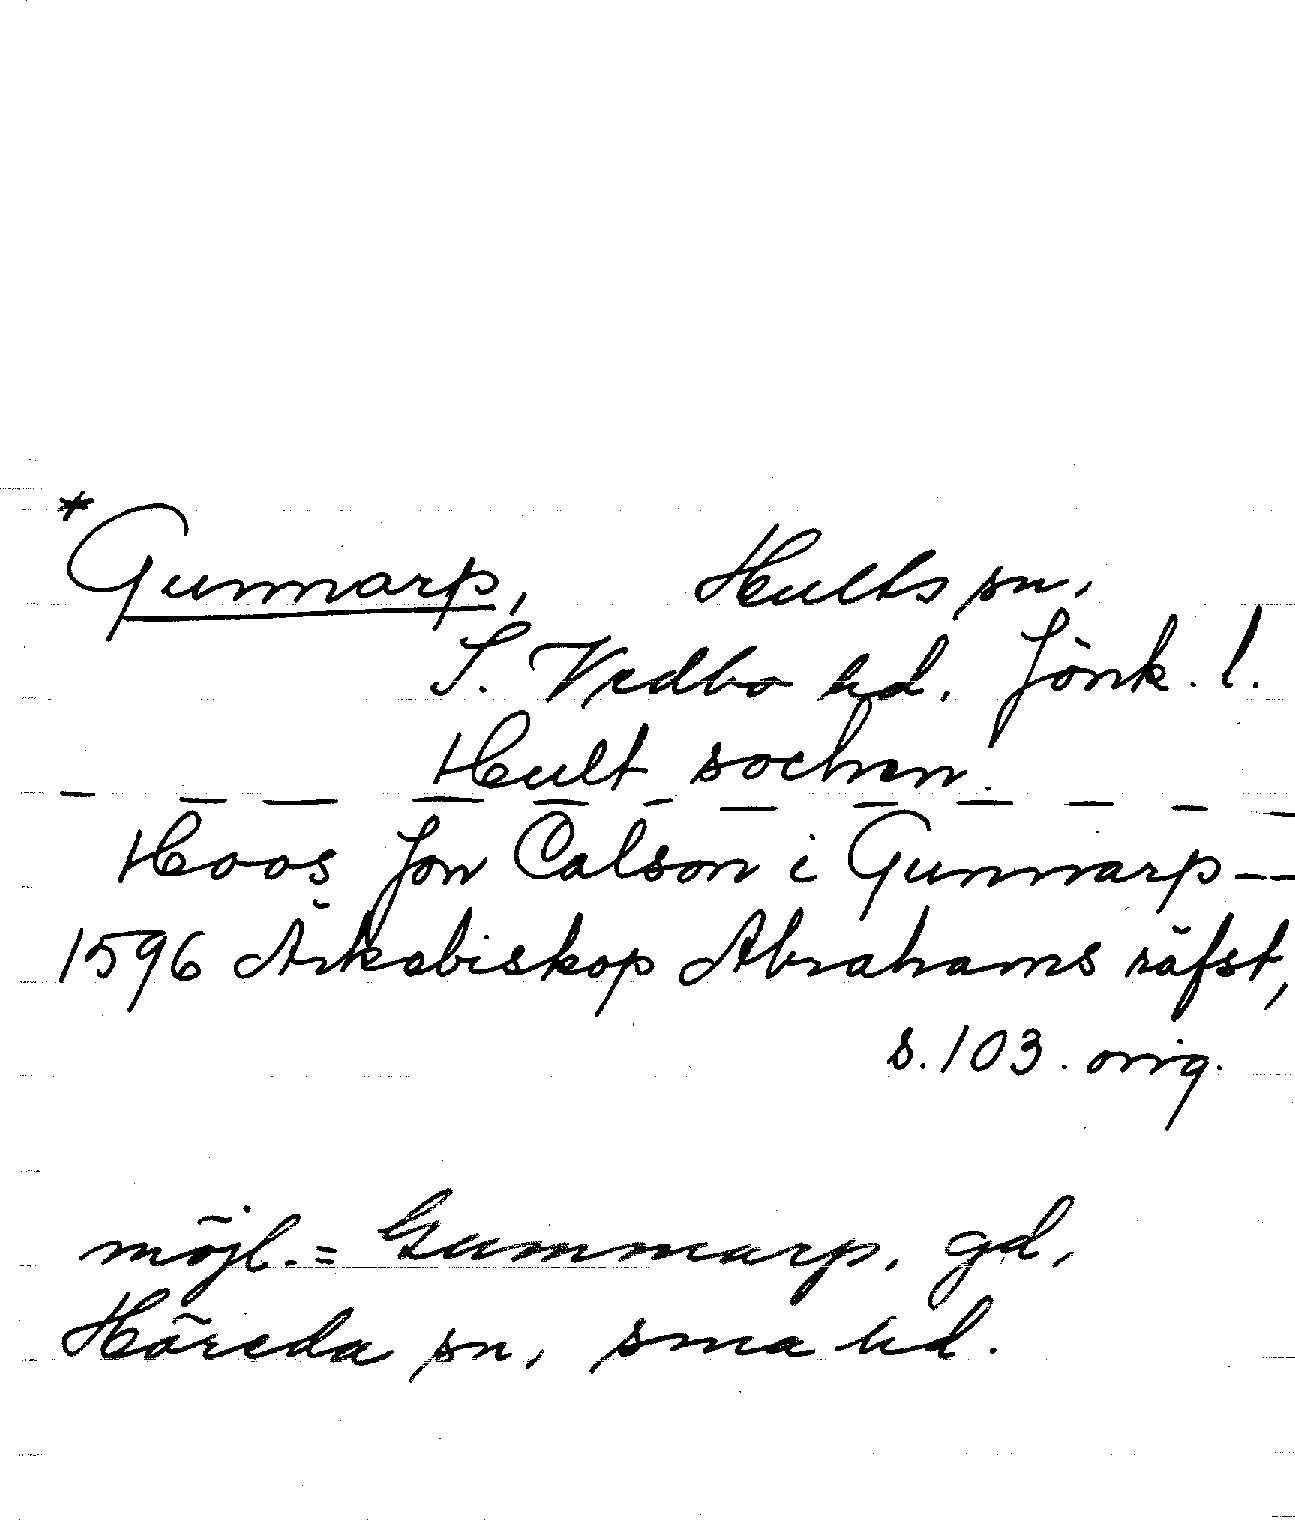 *Gunnarp, Hults sn,
S. Vedbo hd. Jönk. l.
Hult sochen.
Hoos Jon Calson i Gunnarp--
1596 Ärkebiskop Abrahams räfst,
s. 103. orig.
möjl. = Gummarp, gd,
Höreda sn, sma hd.